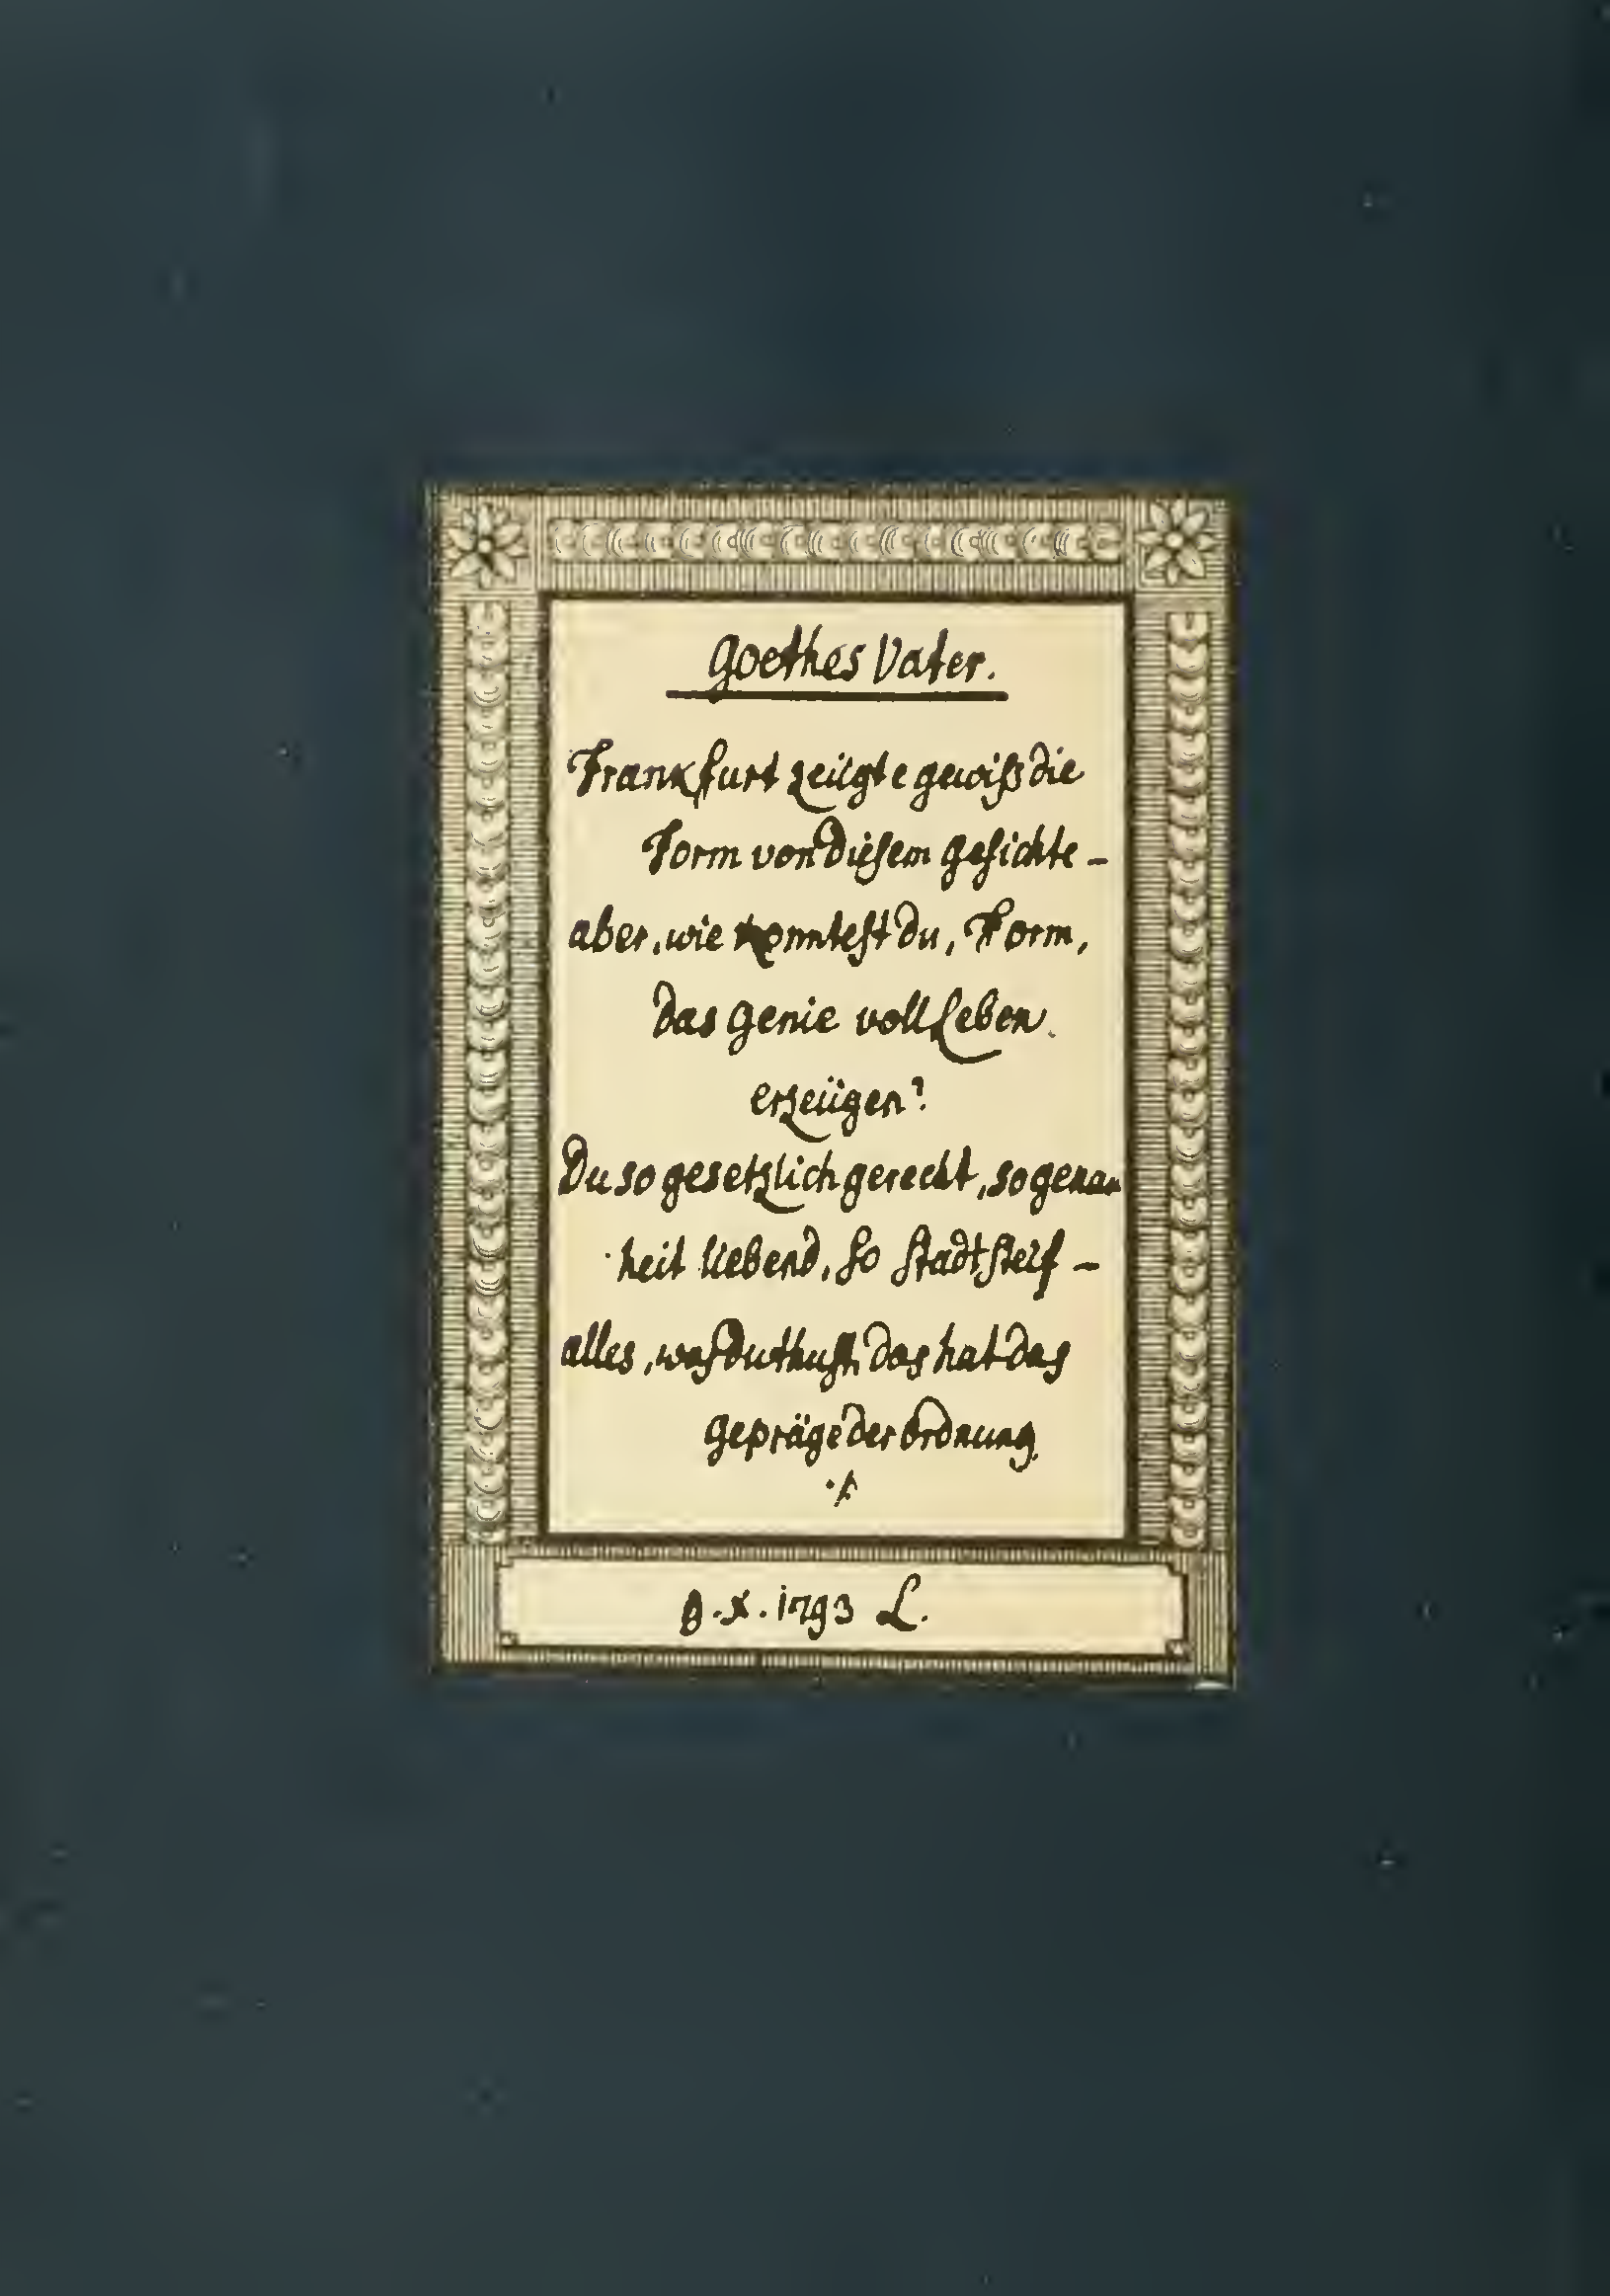 Goethes Vater.
Frankfurt zeügte gewiß die
Form von diesem Gesichte –
aber, wie konntest du, Form,
das Genie voll Leben
erzeügen?
Du so gesetzlich gerecht, so genau
heit liebend, so stadtsteif –
alles, was du thust, das hat das
Gepräge der Ordnung.
./.
8. X. 1793 L.